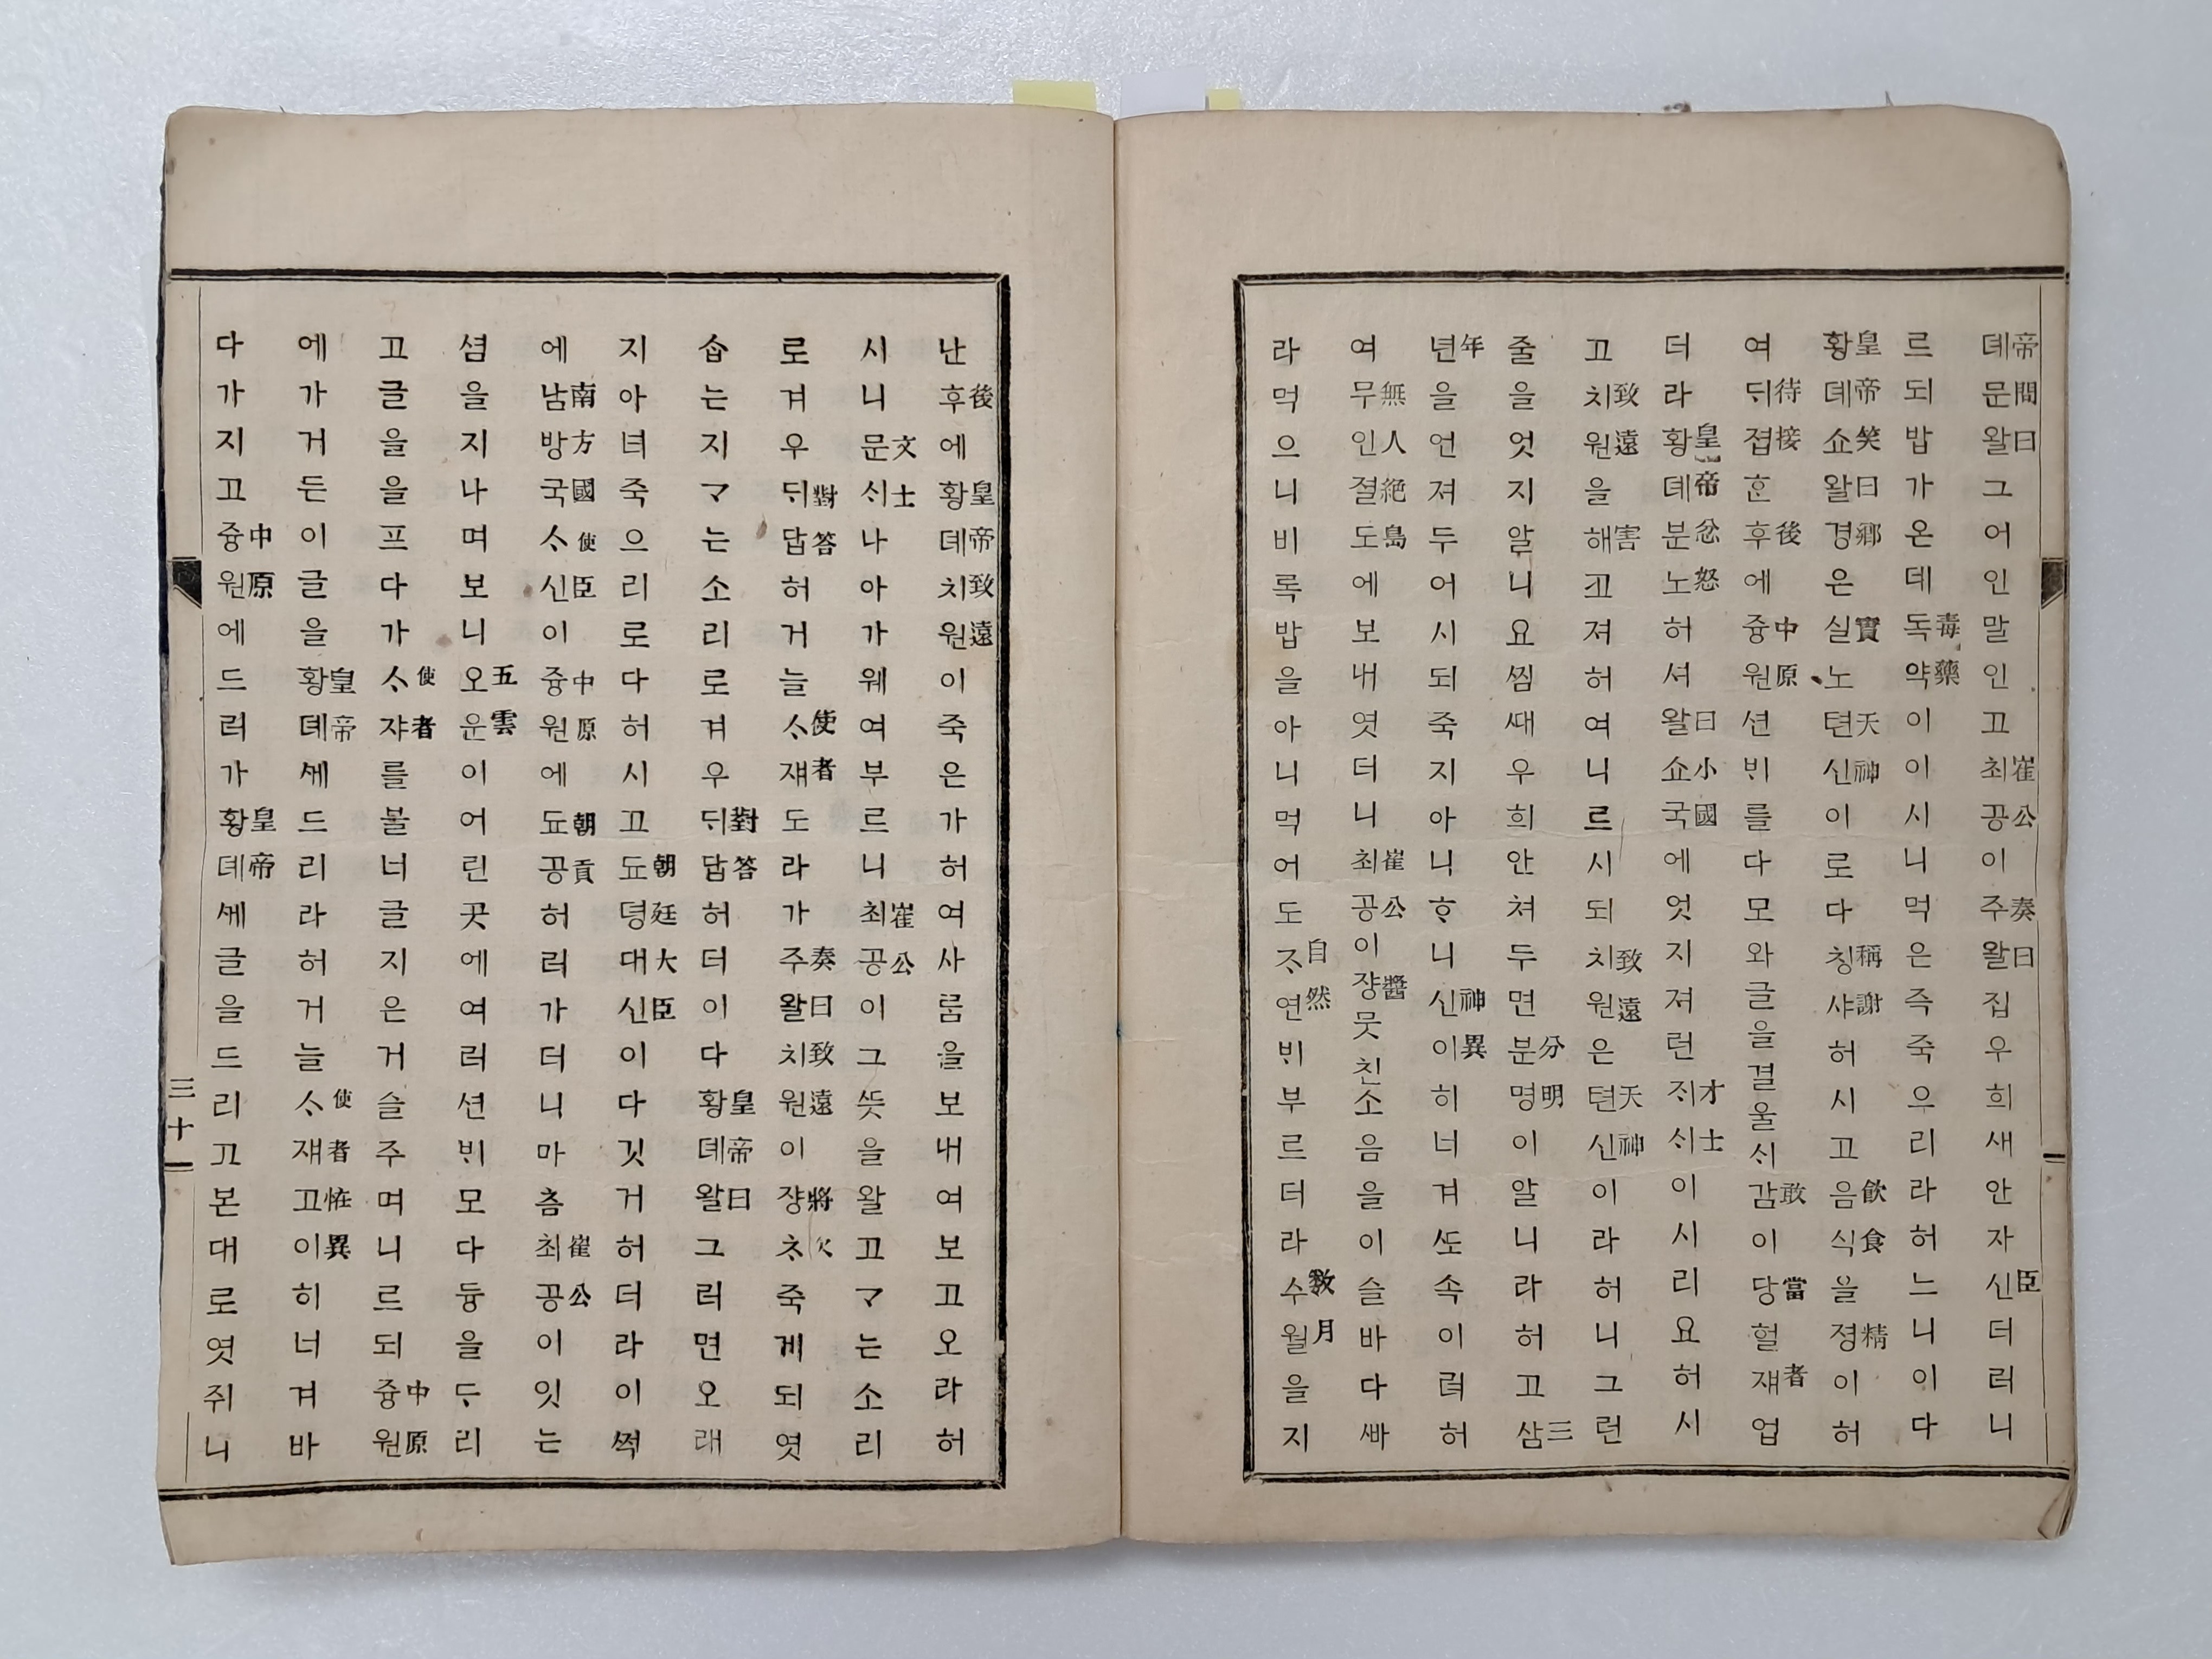 뎨문왈그어인말인고최공이주왈집우희새안자신더러니
帝問曰崔公奏曰臣
르되밥가온데독약이이시니먹은즉죽우리라허느니이다
毒藥
황뎨쇼왈경은실노텬신이로다칭샤허시고음식을졍이허
皇帝笑曰卿實天神稱謝飮食精
여ᄃᆡ졉ᄒᆞᆫ후에즁원션ᄇᆡ를다모와글을결울ᄉᆡ감이당헐쟤업
待接後中原敢當者
더라황뎨분노허셔왈쇼국에엇지져런ᄌᆡᄉᆡ이시리요허시
皇帝忿怒曰小國才士
고치원을해코져허여니르시되치원은텬신이라허니그런
致遠害致遠天神
줄을엇지알니요찜ᄯᅢ우희안쳐두면분명이알니라허고삼
分明三
년을언져두어시되죽지아니ᄒᆞ니신이히너겨ᄯᅩ속이려허
年神異
여무인졀도에보내엿더니최공이쟝뭇친소음을이슬바다ᄲᅡ
無人絶島崔公醬
라먹으니비록밥을아니먹어도ᄌᆞ연ᄇᆡ부르더라수월을지
自然數月
난후에황뎨치원이죽은가허여사룸을보내여보고오라허
後皇帝致遠
시니문ᄉᆡ나아가웨여부르니최공이그ᄯᅳᆺ을왈고ᄀᆞ는소리
文士崔公
로겨우ᄃᆡ답허거늘ᄉᆞ쟤도라가주왈치원이쟝ᄎᆞ죽게되엿
對答使者奏曰致遠將次
습는지ᄀᆞ는소리로겨우ᄃᆡ답허더이다황뎨왈그러면오래
對答皇帝曰
지아녀죽으리로다허시고됴뎡대신이다깃거허더라이ᄶᅥᆨ
朝廷大臣
에남방국ᄉᆞ신이즁원에됴공허러가더니마츰최공이잇는
南方國使臣中原朝貢崔公
셤을지나며보니오운이어린곳에여러션ᄇᆡ모다듕을ᄃᆞ리
五雲
고글을을프다가ᄉᆞ쟈를불너글지은거슬주며니르되즁원
使者中原
에가거든이글을황뎨ᄭᅦ드리라허거늘ᄉᆞ쟤고이히너겨바
皇帝使者恠異
다가지고즁원에드러가황뎨ᄭᅦ글을드리고본대로엿쥐니
中原皇帝
三十一